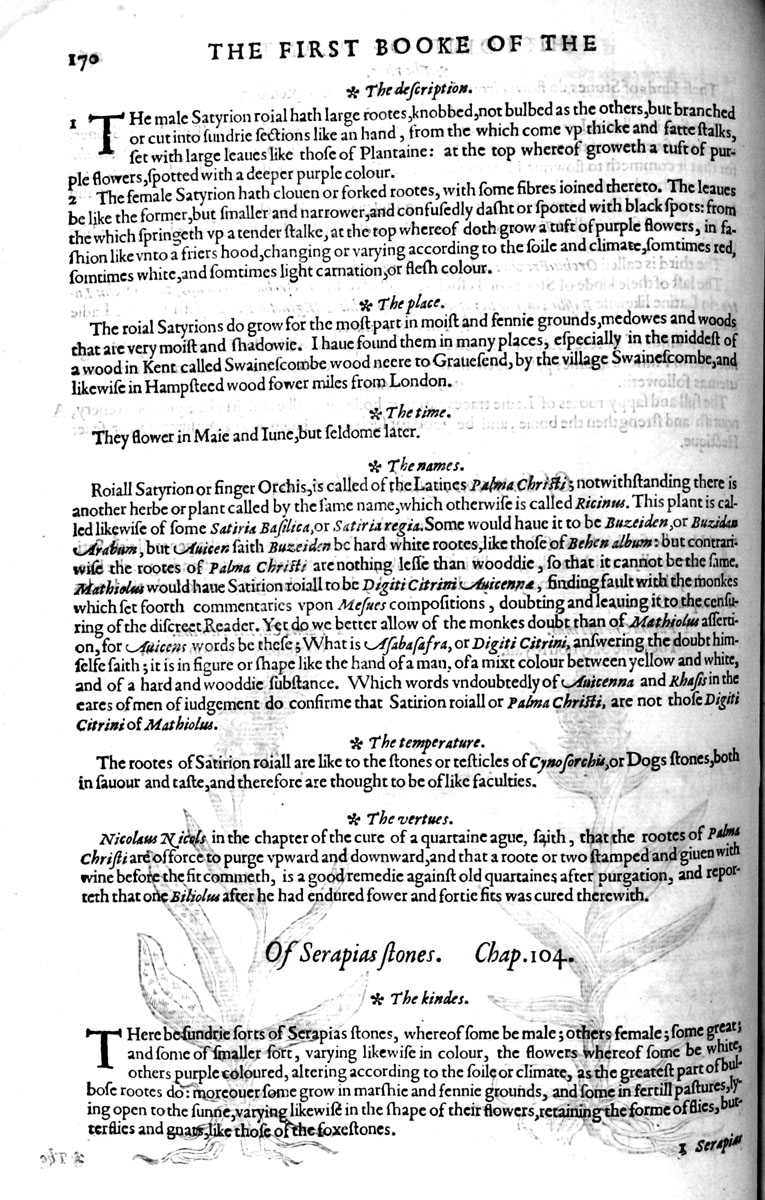 170 THE FIRST BOOKE OF THE
✻ The deſcription.
1 THe male Satyrion roial hath large rootes,knobbed,not bulbed as the others,but branched
or cut into ſundrie ſections like an hand, from the which come vp thicke and fatte ſtalks,
ſet with large leaues like thoſe of Plantaine: at the top whereof groweth a tuft of pur-
ple flowers,ſpotted with a deeper purple colour.
2 The female Satyrion hath clouen or forked rootes, with ſome fibres ioined thereto. The leaues
be like the former,but ſmaller and narrower,and confuſedly daſht or ſpotted with black ſpots: from
the which ſpringeth vp a tender ſtalke, at the top whereof doth grow a tuft of purple flowers, in fa-
ſhion like vnto a friers hood,changing or varying according to the ſoile and climate,ſomtimes red,
ſomtimes white,and ſomtimes light carnation,or fleſh colour.
✻ The place.
The roial Satyrions do grow for the moſt part in moiſt and fennie grounds,medowes and woods
that are very moiſt and ſhadowie. I haue found them in many places, eſpecially in the middeſt of
a wood in Kent called Swaineſcombe wood neere to Graueſend, by the village Swaineſcombe,and
likewiſe in Hampſteed wood fower miles from London.
✻ The time.
They flower in Maie and Iune,but ſeldome later.
✻ The names.
Roiall Satyrion or finger Orchis,is called of the Latines Palma Chriſti; notwithſtanding there is
another herbe or plant called by the ſame name,which otherwiſe is called Ricinus. This plant is cal-
led likewiſe of ſome Satiria Baſilica,or Satiria regia. Some would haue it to be Buzeiden,or Buzidan
Arabum, but Auicen ſaith Buzeiden be hard white rootes,like thoſe of Behen album: but contrari-
wiſe the rootes of Palma Chriſti are nothing leſſe than wooddie, ſo that it cannot be the ſame.
Mathiolus would haue Satirion roiall to be Digiti Citrini Auicenna, finding fault with the monkes
which ſet foorth commentaries vpon Meſues compoſitions, doubting and leauing it to the cenſu-
ring of the diſcreet Reader. Yet do we better allow of the monkes doubt than of Mathiolus aſſerti-
on, for Auicens words be theſe; What is Aſabaſafra, or Digiti Citrini, anſwering the doubt him-
ſelfe ſaith; it is in figure or ſhape like the hand of a man, of a mixt colour between yellow and white,
and of a hard and wooddie ſubſtance. Which words vndoubtedly of Auicenna and Rhaſis in the
eares of men of iudgement do confirme that Satirion roiall or Palma Chriſti, are not thoſe Digiti
Citrini of Mathiolus.
✻ The temperature.
The rootes of Satirion roiall are like to the ſtones or teſticles of Cynoſorchis,or Dogs ſtones,both
in ſauour and taſte,and therefore are thought to be of like faculties.
✻ The vertues.
Nicolaus Nicols in the chapter of the cure of a quartaine ague, ſaith, that the rootes of Palma
Chriſti are of force to purge vpward and downward,and that a roote or two ſtamped and giuen with
wine before the fit commeth, is a good remedie againſt old quartaines after purgation, and repor-
teth that one Biliolus after he had endured fower and fortie fits was cured therewith.
Of Serapias ſtones. Chap.104.
✻ The kindes.
THere be ſundrie ſorts of Serapias ſtones, whereof ſome be male; others female; ſome great;
and ſome of ſmaller ſort, varying likewiſe in colour, the flowers whereof ſome be white,
others purple coloured, altering according to the ſoile or climate, as the greateſt part of bul-
boſe rootes do: moreouer ſome grow in marſhie and fennie grounds, and ſome in fertill paſtures,ly-
ing open to the ſunne,varying likewiſe in the ſhape of their flowers,retaining the forme of flies, but-
terflies and gnats,like thoſe of the foxeſtones.
1 Serapias